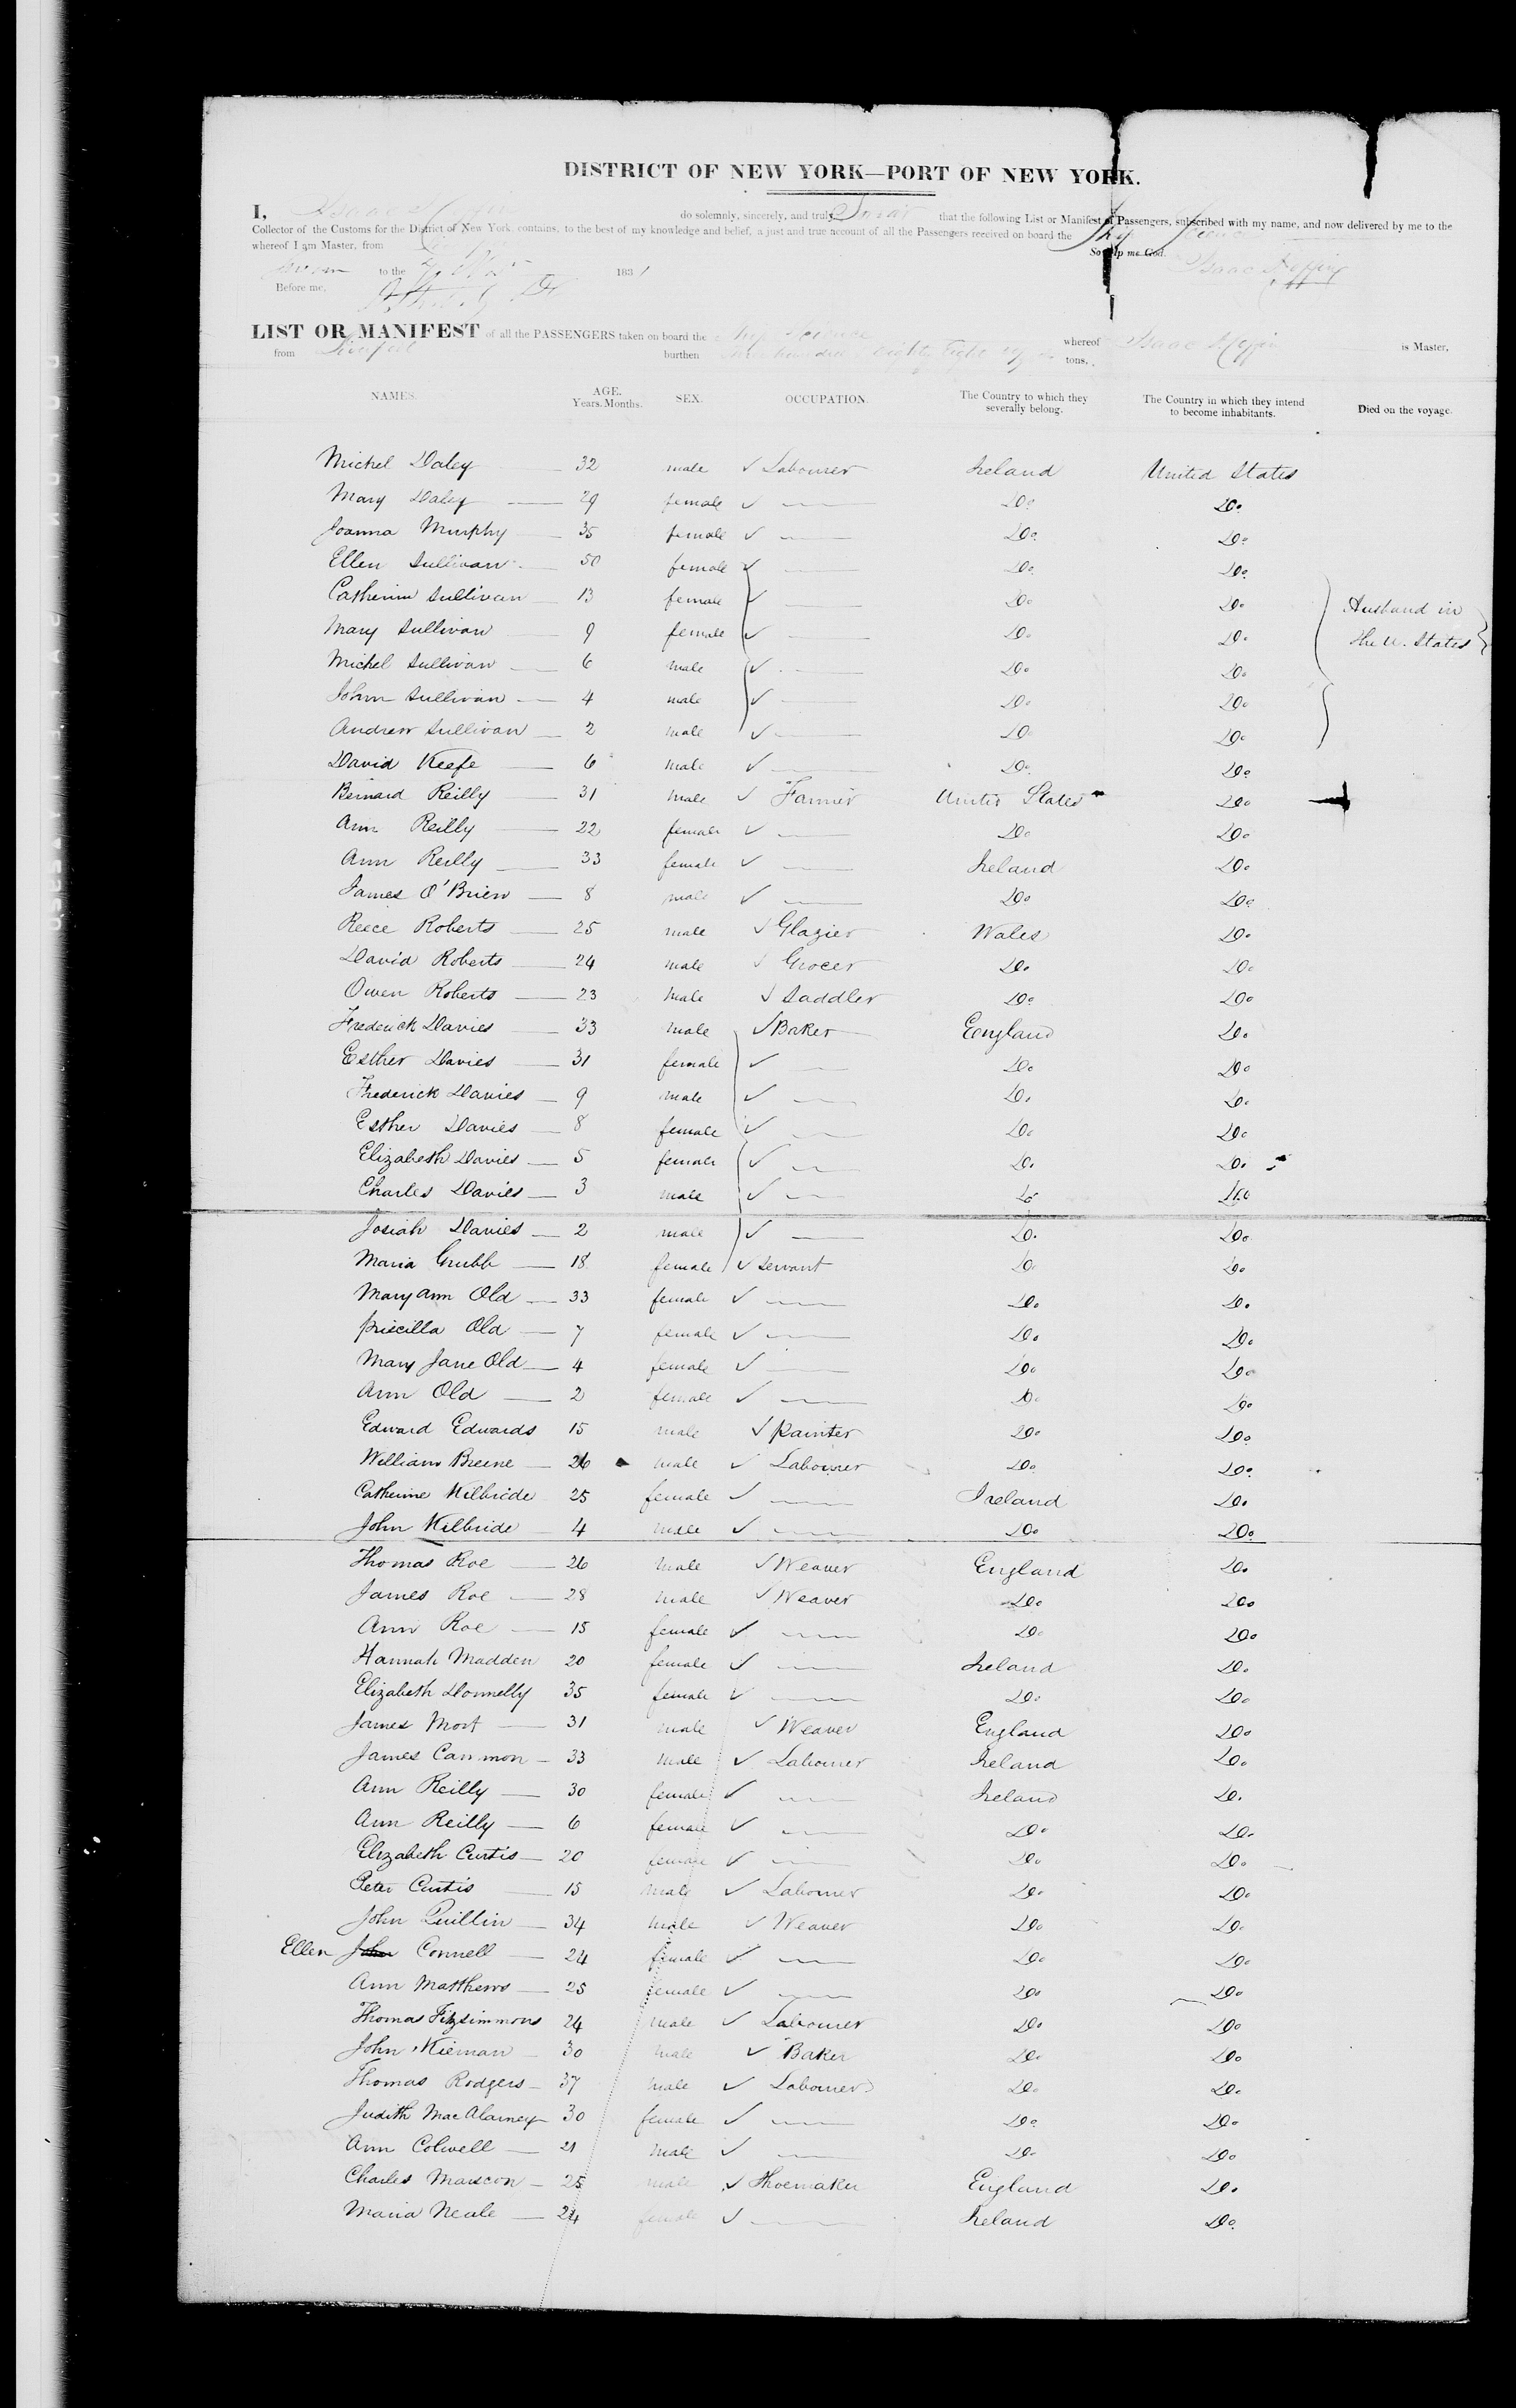 DISTRICT OF NEW YORK—PORT OF NEW YORK.
I, Isaac do solemnly, sincerely, and truly Swear that the following List or Manifest of Passengers, subscribed with my name, and now delivered by me to the
Collector of the Customs for the District of New York, contains, to the best of my knowledge and belief, a just and true account of all the Passengers received on board the Ship
whereof I am Master, from So help me God.
Sworn to the 1831 Isaac
Before me,
LIST OR MANIFEST of all the PASSENGERS taken on board the Ship whereof Isaac is Master,
from Liverpool burthen hundred Eighty Eight tons,
NAMES. AGE. Years. Months. SEX. OCCUPATION. The Country to which they severally belong. The Country in which they intend to become inhabitants. Died on the voyage.
Michel Daley 32 male ✓ Labourer Ireland United States
Mary Daley 29 female ✓ Do. Do.
Joanna Murphy 35 female ✓ Do. Do.
Ellen Sullivan 50 female ✓ Do. Do.
Catherine Sullivan 13 female ✓ Do. Do. Husband in
Mary Sullivan 9 female ✓ Do. Do. the U. States
Michel Sullivan 6 male ✓ Do. Do.
John Sullivan 4 male ✓ Do. Do.
Andrew Sullivan 2 male ✓ Do. Do.
David Keefe 6 male ✓ Do. Do.
Bernard Reilly 31 male ✓ Farmer United States Do.
Ann Reilly 22 female ✓ Do. Do.
Ann Reilly 33 female ✓ Ireland Do.
James O'Brien 8 male ✓ Do. Do.
Reece Roberts 25 male ✓ Glazier Wales Do.
David Roberts 24 male ✓ Grocer Do. Do.
Owen Roberts 23 male ✓ Saddler Do. Do.
Frederick Davies 33 male ✓ Baker England Do.
Esther Davies 31 female ✓ Do. Do.
Frederick Davies 9 male ✓ Do. Do.
Esther Davies 8 female ✓ Do. Do.
Elizabeth Davies 5 female ✓ Do. Do.
Charles Davies 3 male ✓ Do. Do.
Josiah Davies 2 male ✓ Do. Do.
Maria Grubb 18 female ✓ Servant Do. Do.
Mary Ann Old 33 female ✓ Do. Do.
Priscilla Old 7 female ✓ Do. Do.
Mary Jane Old 4 female ✓ Do. Do.
Ann Old 2 female ✓ Do. Do.
Edward Edwards 15 male ✓ Painter Do. Do.
William Breene 26 male ✓ Labourer Do. Do.
Catherine Kilbride 25 female ✓ Ireland Do.
John Kilbride 4 male ✓ Do. Do.
Thomas Roe 26 male ✓ Weaver England Do.
James Roe 28 male ✓ Weaver Do. Do.
Ann Roe 15 female ✓ Do. Do.
Hannah Madden 20 female ✓ Ireland Do.
Elizabeth Donnelly 35 female ✓ Do. Do.
James Mort 31 male ✓ Weaver England Do.
James Canmon 33 male ✓ Labourer Ireland Do.
Ann Reilly 30 female ✓ Ireland Do.
Ann Reilly 6 female ✓ Do. Do.
Elizabeth Curtis 20 female ✓ Do. Do.
Peter Curtis 15 male ✓ Labourer Do. Do.
John Quillin 34 male ✓ Weaver Do. Do.
Ellen John Connell 24 female ✓ Do. Do.
Ann Matthews 25 female ✓ Do. Do.
Thomas Fitzsimmons 24 male ✓ Labourer Do. Do.
John Kiernan 30 male ✓ Baker Do. Do.
Thomas Rodgers 37 male ✓ Labourer Do. Do.
Judith MacAlarney 30 female ✓ Do. Do.
Ann Colwell 21 male ✓ Do. Do.
Charles Marscon 25 male ✓ Shoemaker England Do.
Maria Neale 24 female ✓ Ireland Do.